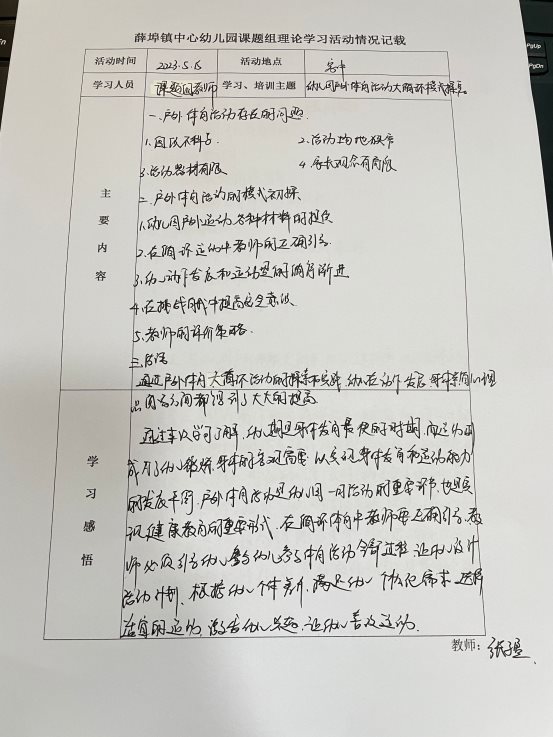 薛埠镇中心幼儿园课题组理论学习活动情况记载
活动时间 2023.5.15 活动地点
学习人员 课题组教师 学习、培训主题 幼儿园户外体育活动大循环模式探究
主要内容
一、户外体育活动存在的问题
1. 2.活动场地秩序
3.活动器材有限 4.家长观念有局限
二、户外体育活动的模式初探
1.幼儿园户外运动各种材料的提供
2.在循环运动中教师的正确引导
3.幼儿动作发展和运动量的循序渐进
4.在挑战游戏中提高安全意识
5.教师的评价策略
三、总结
通过户外体育大循环活动的探索和实践,幼儿在动作发展、身体素质、心理
品质方面都得到了大大的提高
学习感悟
通过本次学习了解,幼儿期是身体发育最快的时期,而运动
幼儿 身体的客观需要,以实现身体发育和运动能力
的发展平同,户外体育活动是幼儿园一日活动的重要环节,也是实
现健康教育的重要形式,在循环体育中教师要正确引导,教
师必须引导幼儿参与幼儿参与体育活动 让幼儿设计
活动计划,根据幼儿个体条件,满足幼儿个性化需求,选择
适宜的运动,激发幼儿兴趣,让幼儿喜欢运动.
教师: